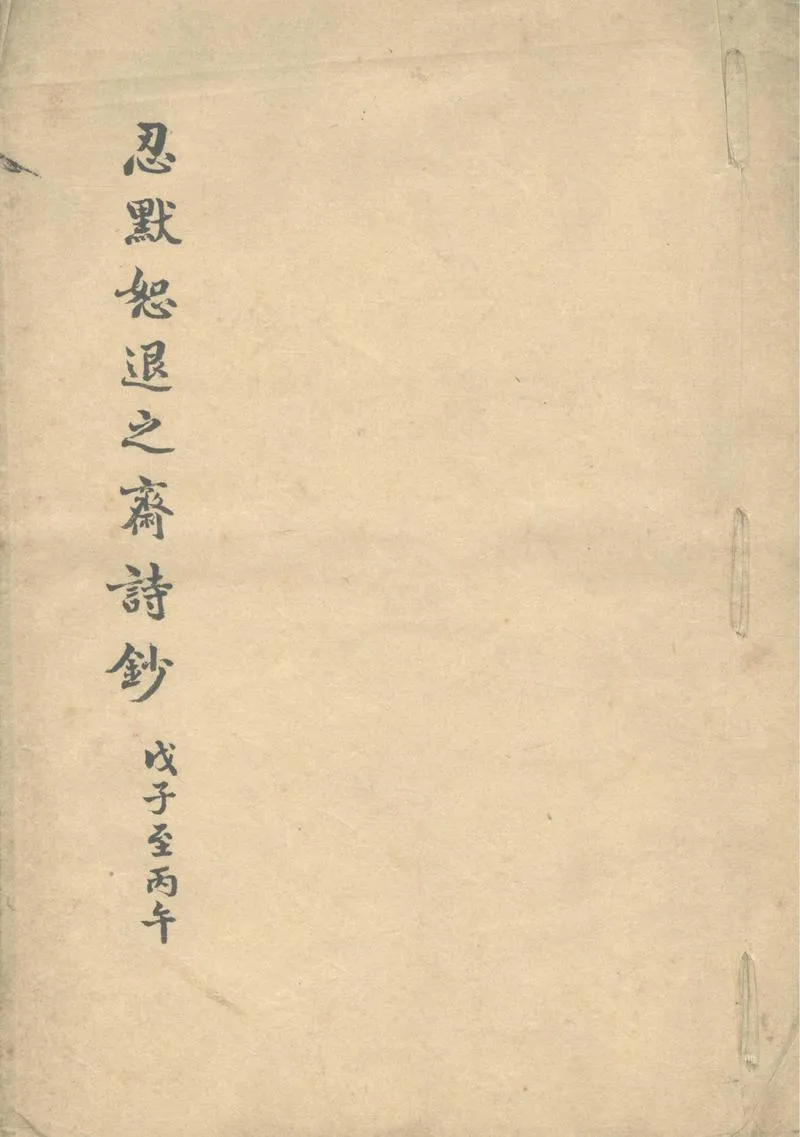 忍默恕退之齋詩鈔
戊子至丙午